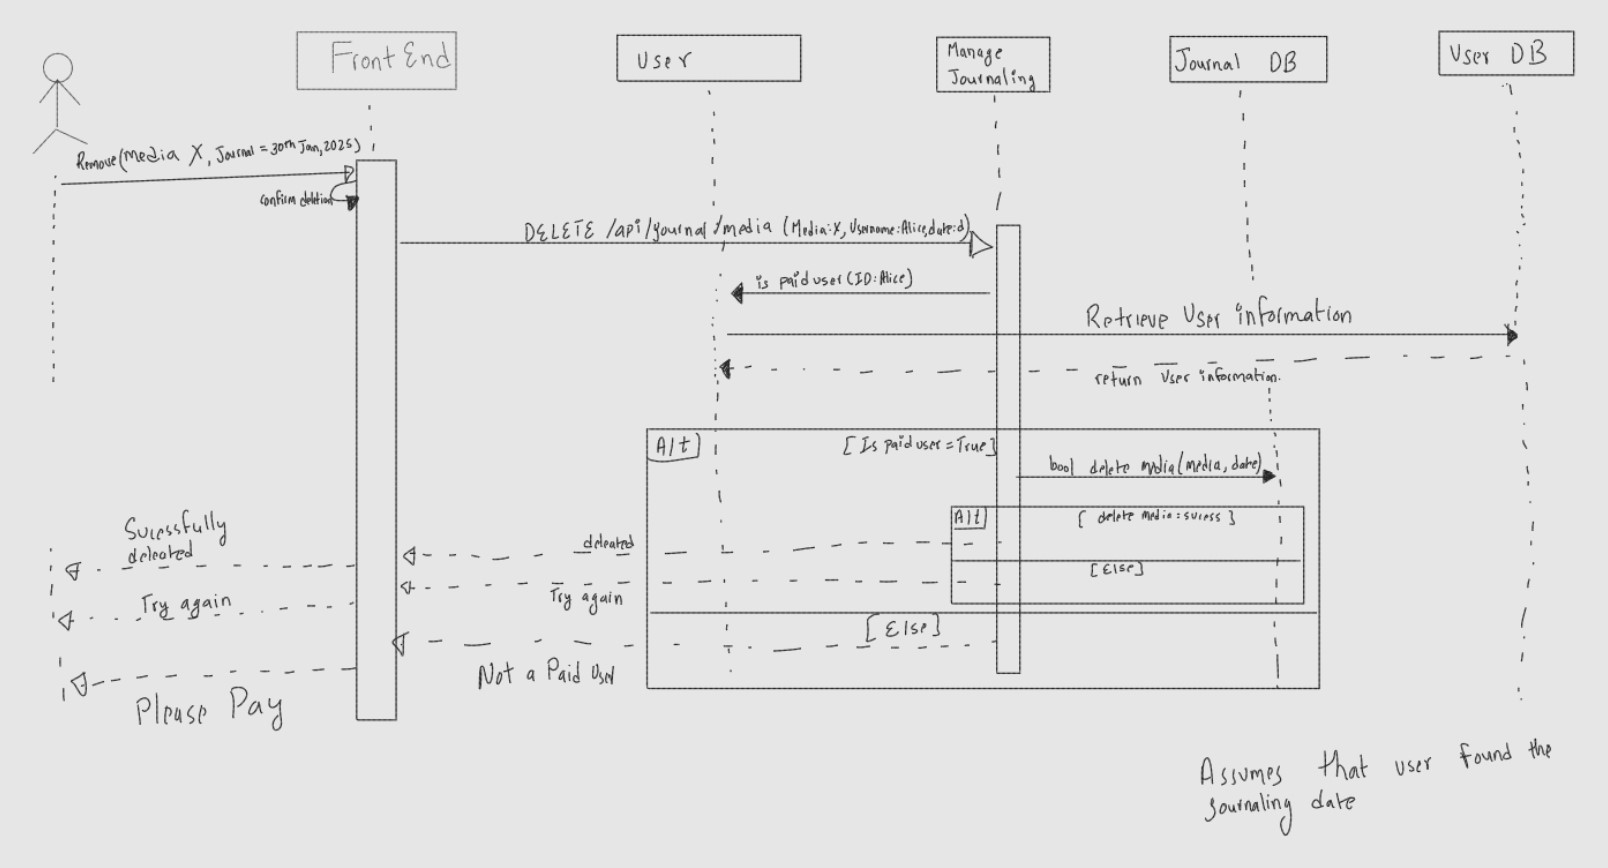 Front End
User
Manage
Journaling
Journal DB
User DB
Remove(Media X, Journal = 30th Jan, 2025)
Confirm deletion
DELETE /api/journal/media (Media:X, Username:Alice, date:d)
is paid user (ID:Alice)
Retrieve User information
return User information.
Alt
[Is paid user = True]
bool delete media(media, date)
Alt
[ delete media = sucess ]
deleated
Sucessfully
deleated
[Else]
Try again
Try again
[Else]
Not a Paid User
Please Pay
Assumes that user found the
journaling date